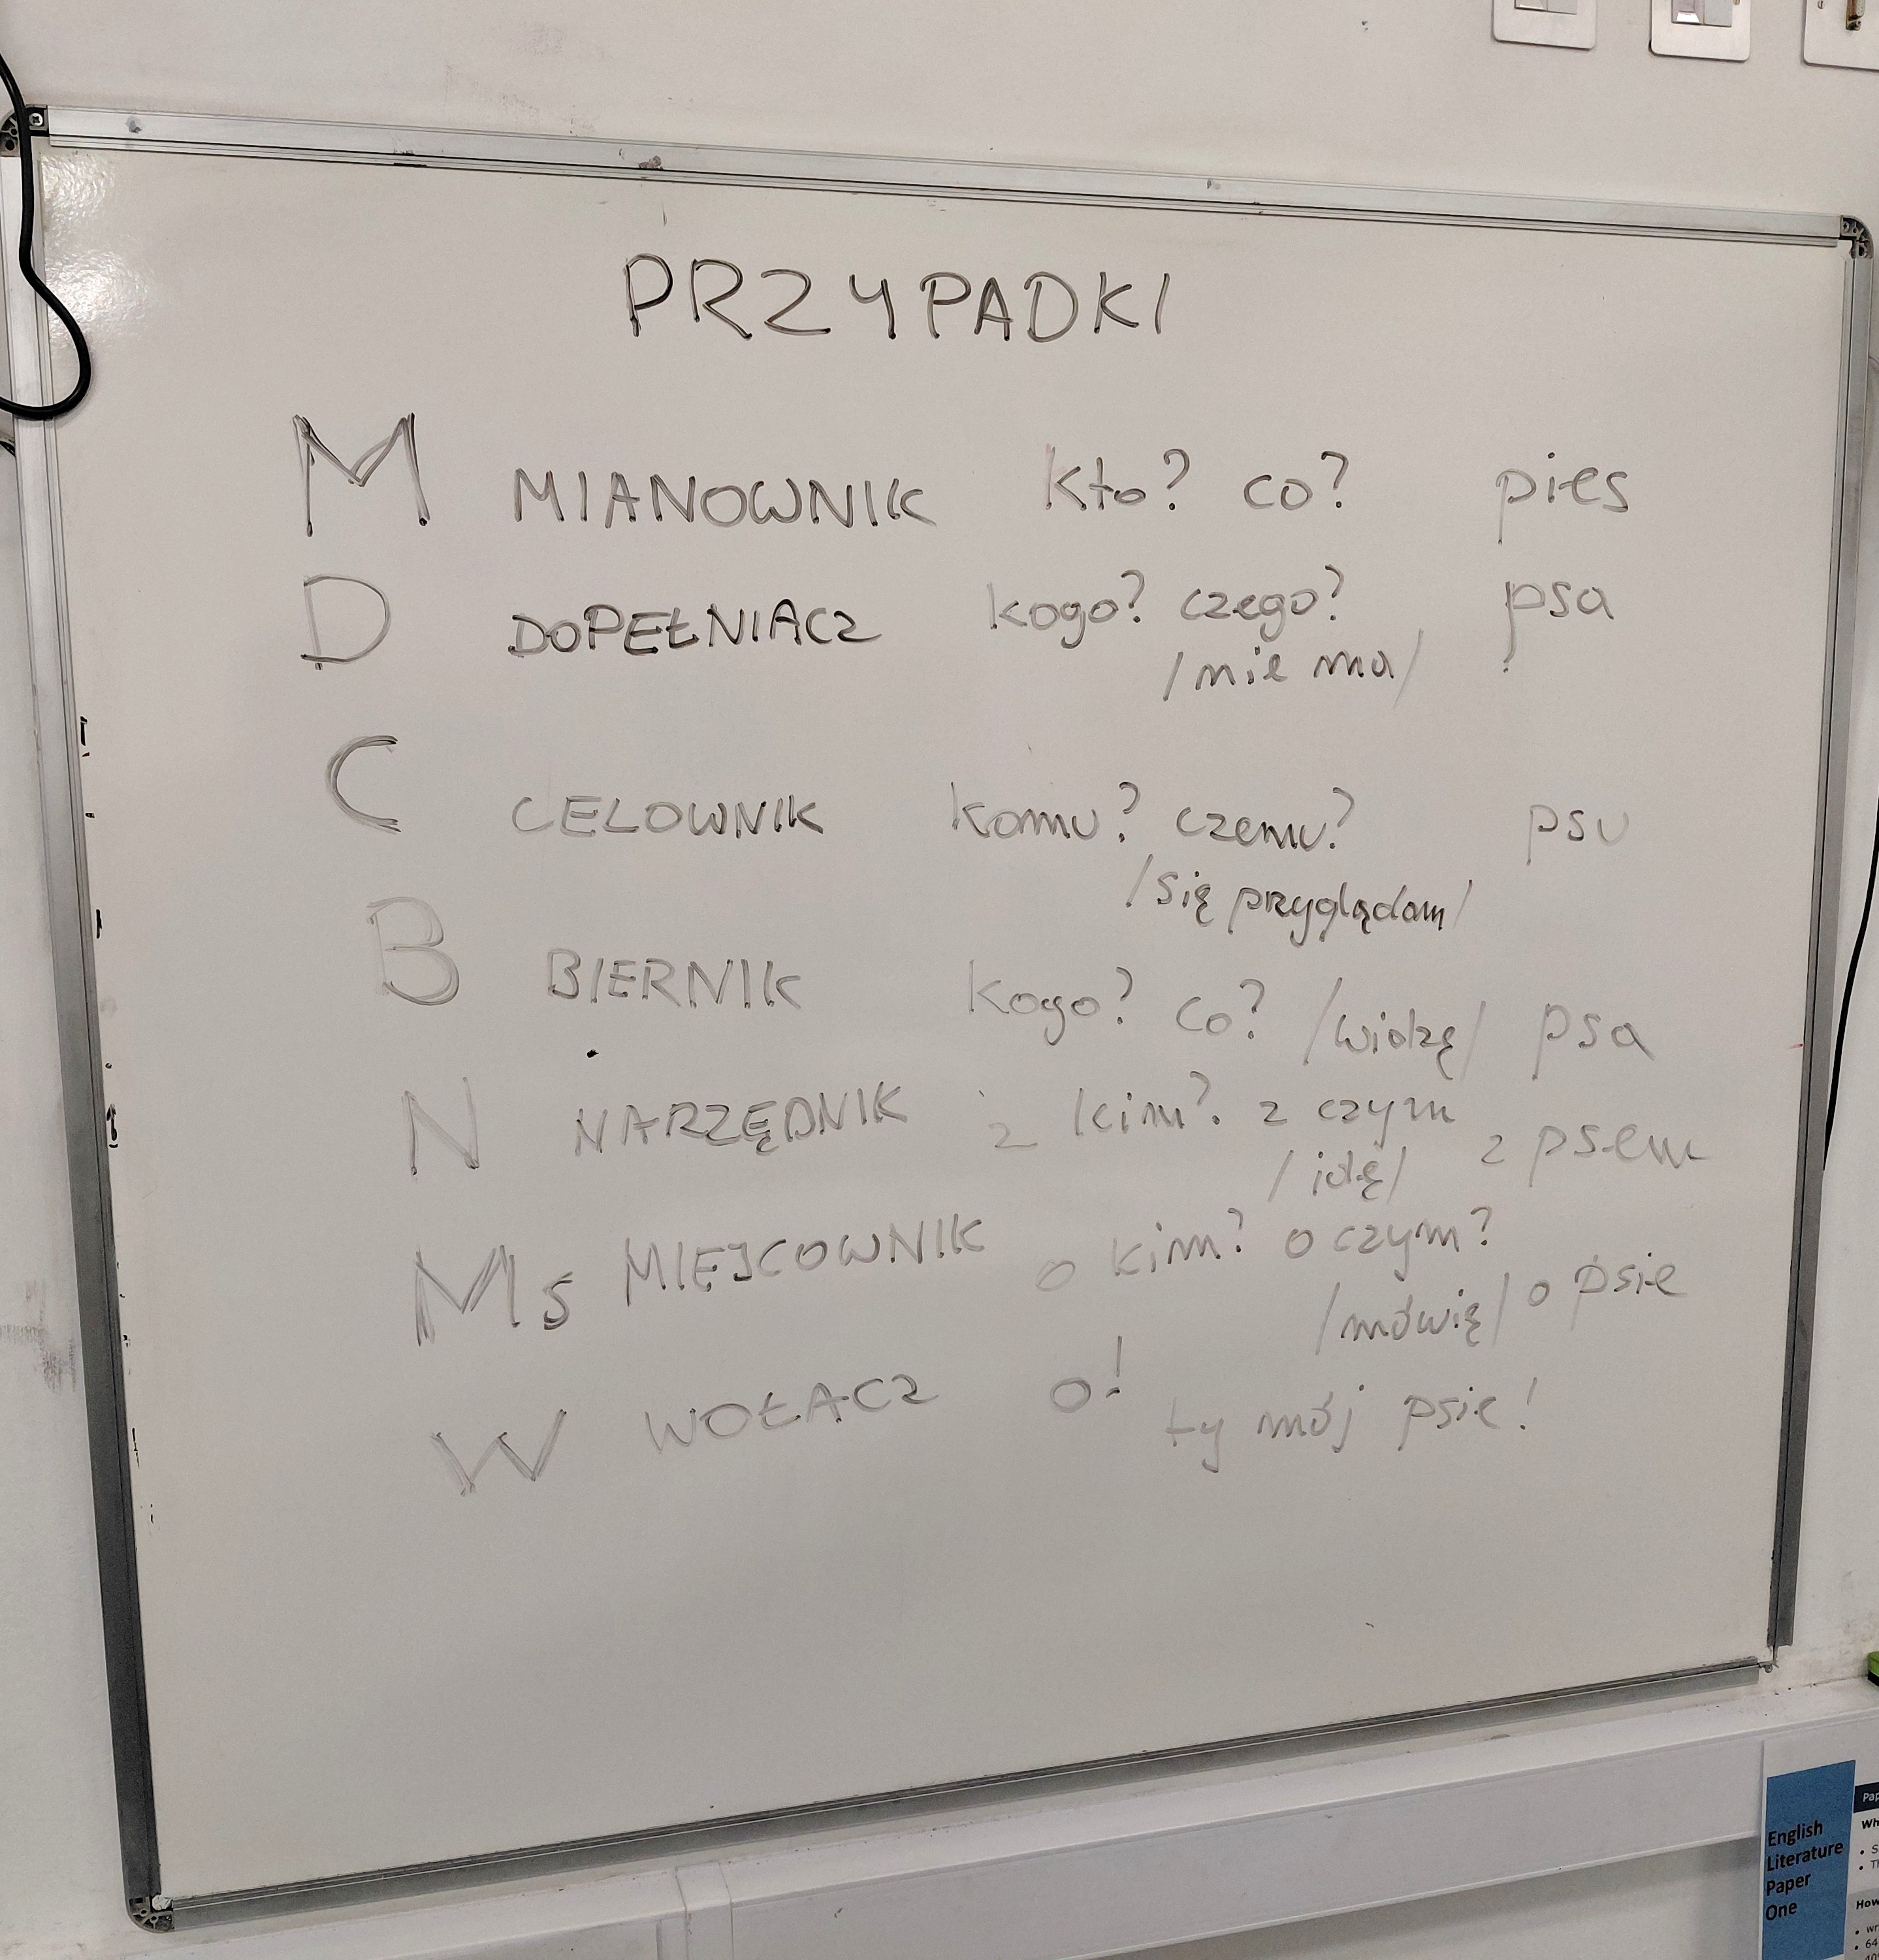 PRZYPADKI
M MIANOWNIK kto? co? pies
D DOPEŁNIACZ kogo? czego? psa
/nie ma/
C CELOWNIK komu? czemu? psu
/się przyglądam/
B BIERNIK kogo? co? /widzę/ psa
N NARZĘDNIK z kim? z czym z psem
/idę/
Ms MIEJCOWNIK o kim? o czym?
/mówię/ o psie
W WOŁACZ o! ty mój psie!
English
Literature
Paper
One